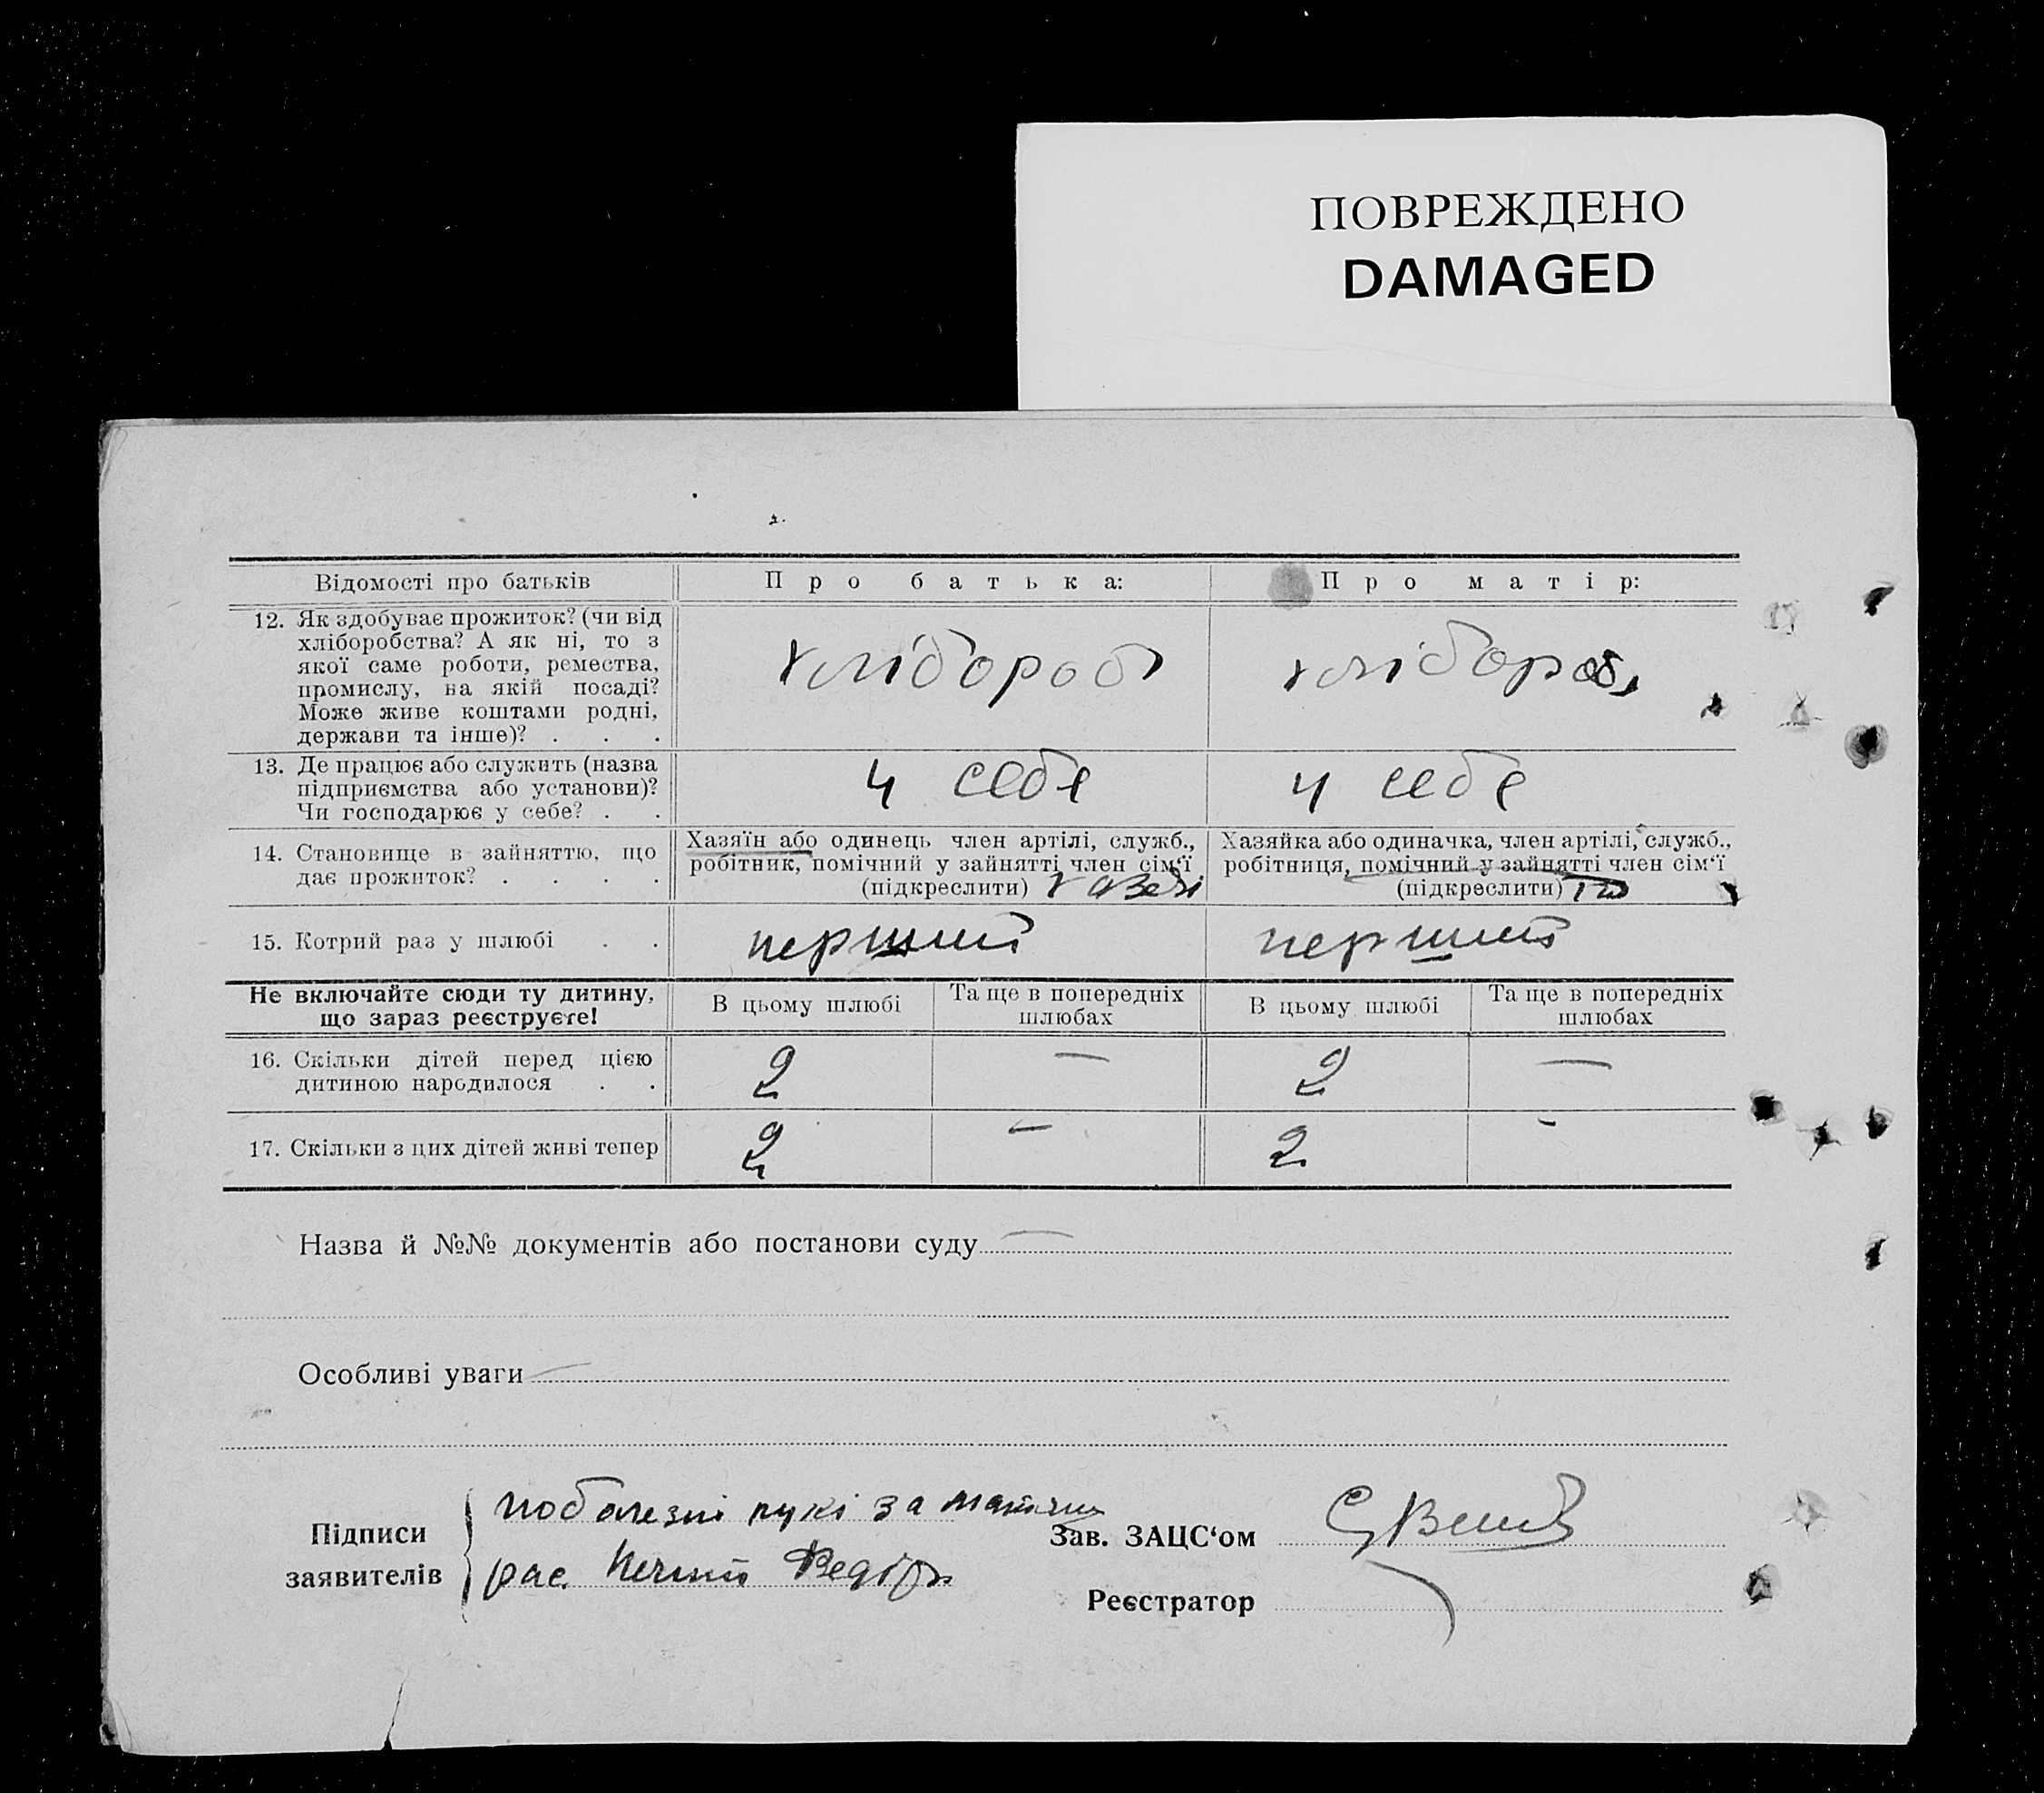 ПОВРЕЖДЕНО
DAMAGED
Відомості про батьків
Про батька:
Про матір:
12. Як здобуває прожиток? (чи від
хліборобства? А як ні, то з
якої саме роботи, ремества,
промислу, на якій посаді?
Може живе коштами родні,
держави та інше)? . . .
хлібороб
хлібороб
13. Де працює або служить (назва
підприємства або установи)?
Чи господарює у себе? . .
у себе
у себе
14. Становище в зайняттю, що
дає прожиток? . . . .
Хазяїн або одинець член артілі, служб.,
робітник, помічний у зайнятті член сім‘ї
(підкреслити)
Хазяйка або одиначка, член артілі, служб.,
робітниця, помічний у зайнятті член сім‘ї
(підкреслити)
15. Котрий раз у шлюбі . .
перший
перший
Не включайте сюди ту дитину,
що зараз реєструєте!
В цьому шлюбі
Та ще в попередніх
шлюбах
В цьому шлюбі
Та ще в попередніх
шлюбах
16. Скільки дітей перед цією
дитиною народилося . .
2
—
2
—
17. Скільки з цих дітей живі тепер
2
—
2
-
Назва й №№ документів або постанови суду —
Особливі уваги —
Підписи
заявителів
рукі за
рас.
Зав. ЗАЦС‘ом
Реєстратор